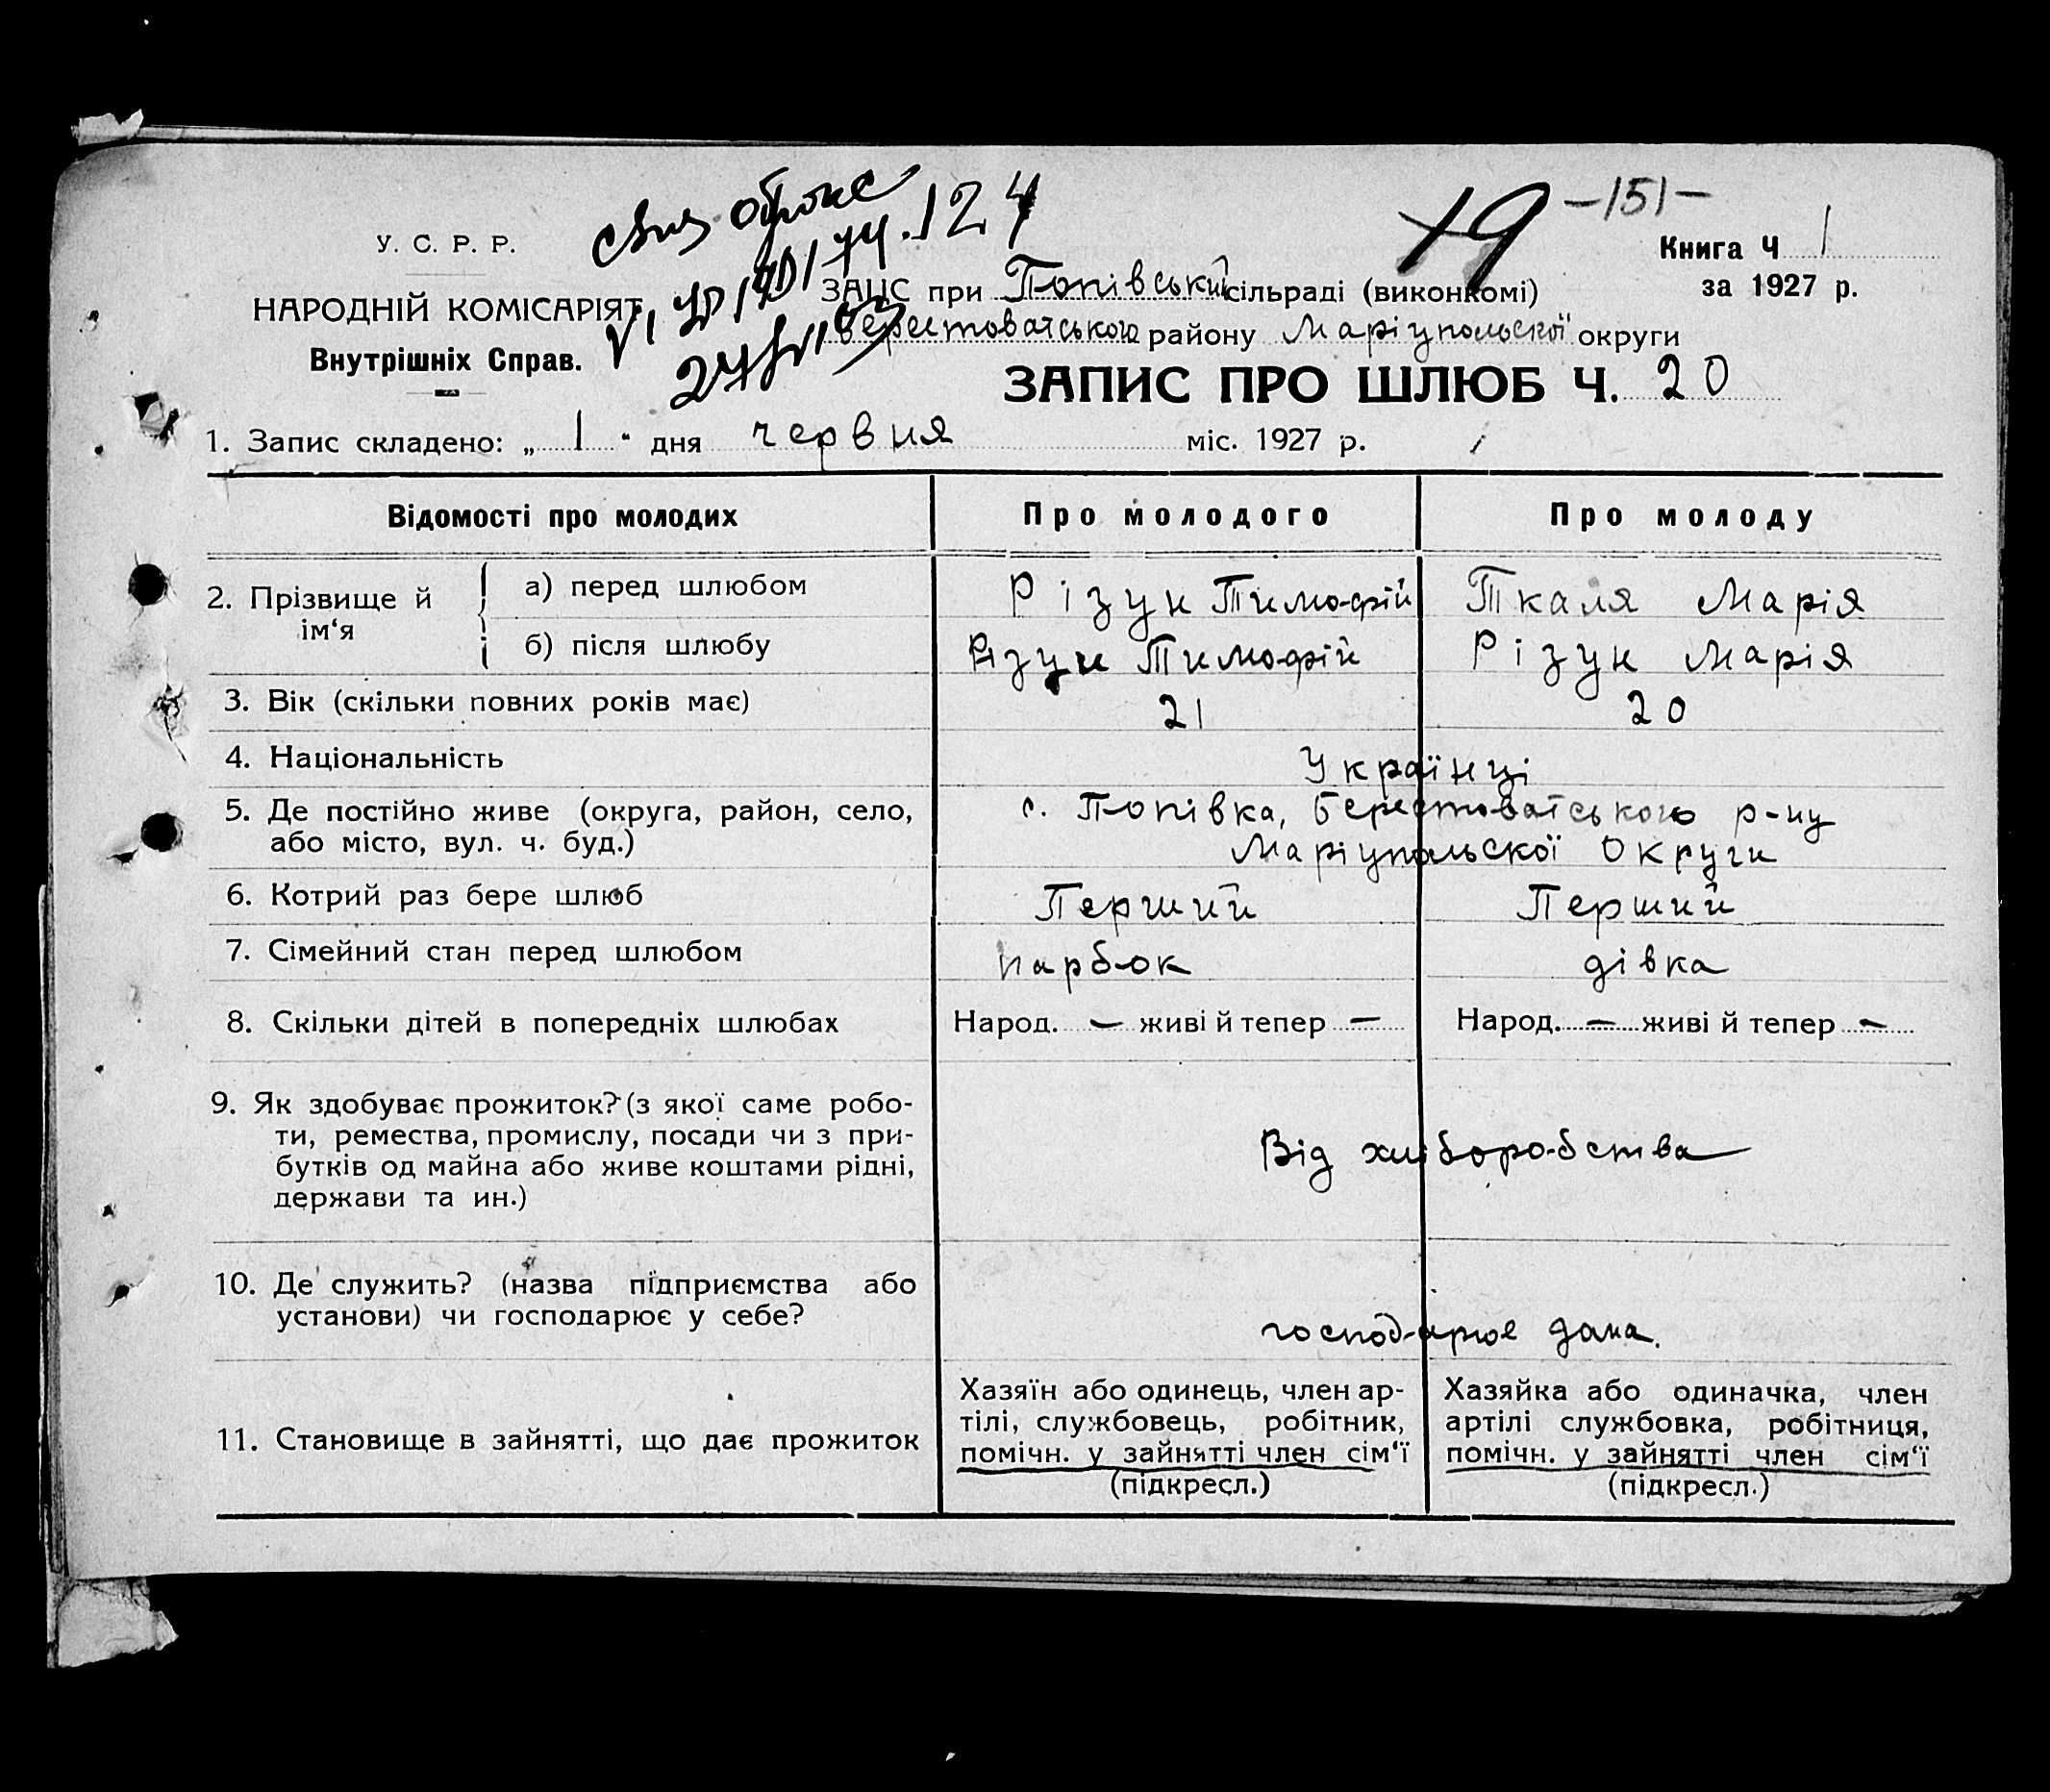 124
19 -151-
У. С. Р. Р.
Книга Ч 1
НАРОДНІЙ КОМІСАРІЯТ
ЗАПС при Попівський сільраді (виконкомі)
за 1927 р.
Внутрішніх Справ.
Берестоватського району Маріупольскої округи
ЗАПИС ПРО ШЛЮБ Ч. 20
1. Запис складено: „ 1 " дня червня міс. 1927 р.
Відомості про молодих Про молодого Про молоду
2. Прізвище й ім‘я
а) перед шлюбом Різун Тимофій Ткаля Марія
б) після шлюбу Різун Тимофій Різун Марія
3. Вік (скільки повних років має) 21 20
4. Національність Українці
5. Де постійно живе (округа, район, село, с. Попівка, Берестоватського р-ну
або місто, вул. ч. буд.) Маріупольскої Округи
6. Котрий раз бере шлюб Перший Перший
7. Сімейний стан перед шлюбом парбок дівка
8. Скільки дітей в попередніх шлюбах Народ. — живі й тепер — Народ. — живі й тепер —
9. Як здобуває прожиток? (з якої саме робо-
ти, ремества, промислу, посади чи з при-
бутків од майна або живе коштами рідні,
держави та ин.)
Від хліборобства
10. Де служить? (назва підприємства або
установи) чи господарює у себе?
господарює дома.
11. Становище в зайнятті, що дає прожиток
Хазяїн або одинець, член ар-
тілі, службовець, робітник,
помічн. у зайнятті член сім‘ї
(підкресл.)
Хазяйка або одиначка, член
артілі службовка, робітниця,
помічн. у зайнятті член сім‘ї
(підкресл.)